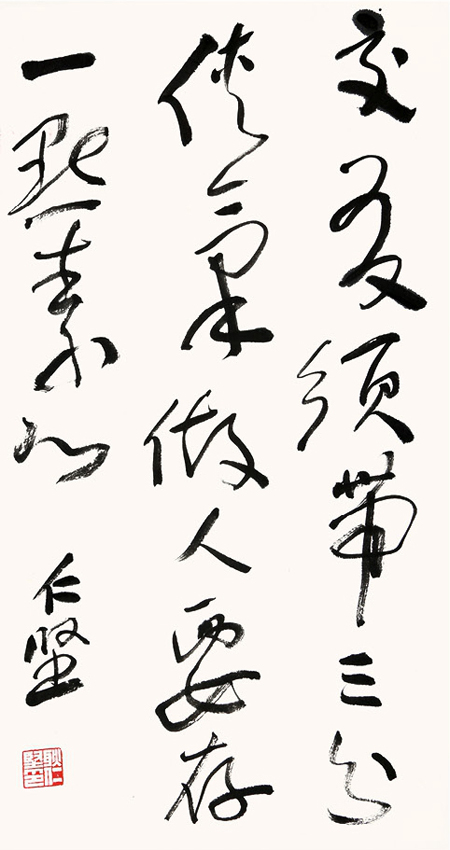 交友须带三分
侠气做人要存
一点素心
仁坚
耿仁坚印